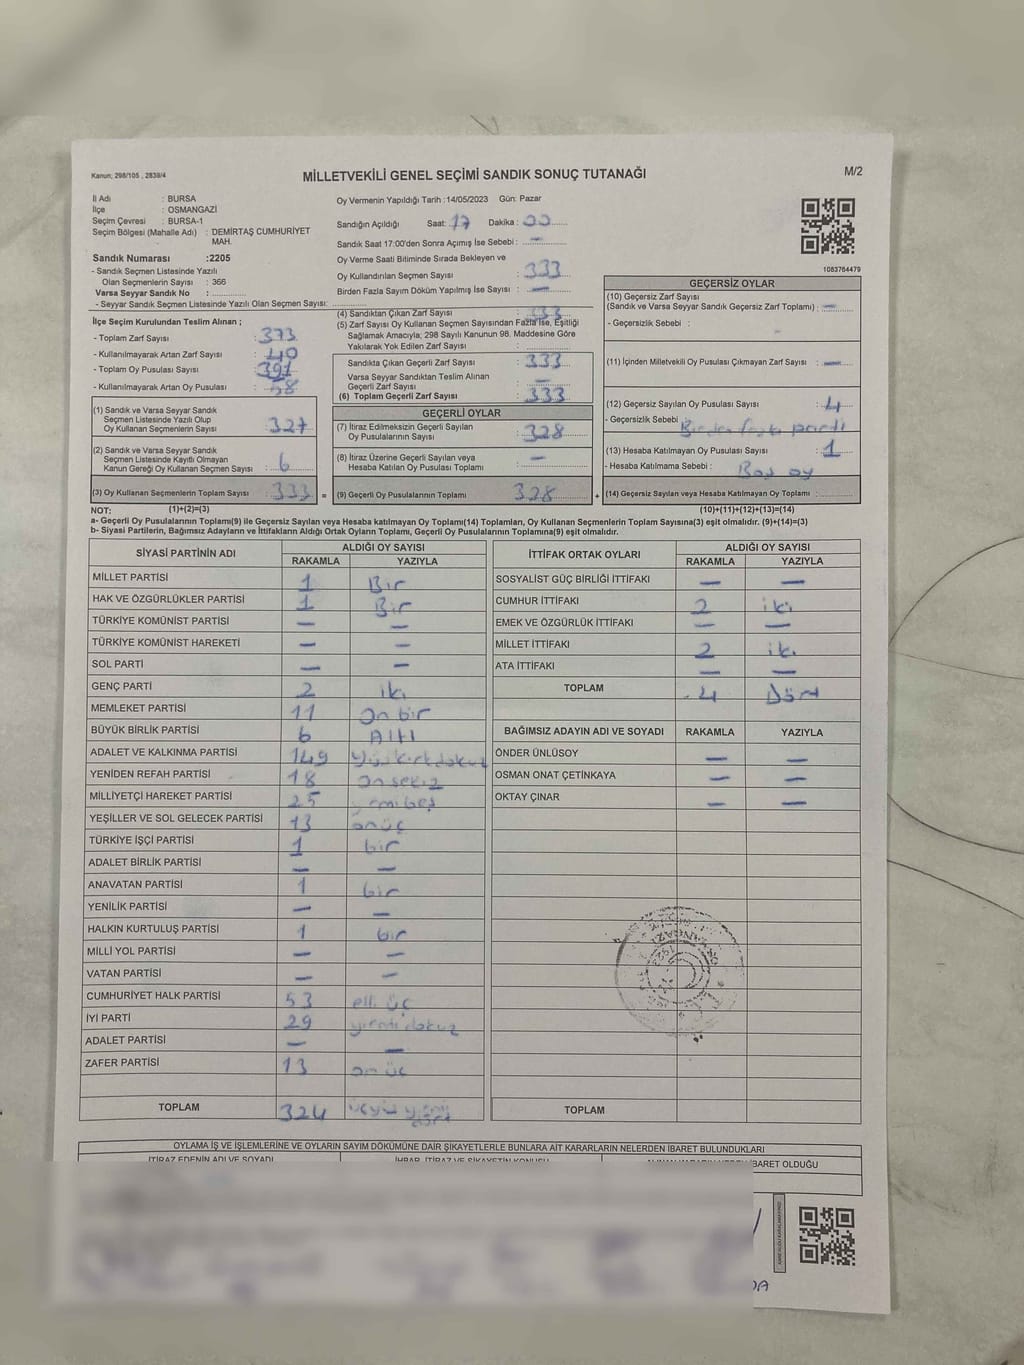 Kanun; 298/105 , 2839/4
MİLLETVEKİLİ GENEL SEÇİMİ SANDIK SONUÇ TUTANAĞI
M/2
İl Adı : BURSA
İlçe : OSMANGAZİ
Seçim Çevresi : BURSA-1
Seçim Bölgesi (Mahalle Adı) : DEMİRTAŞ CUMHURİYET
MAH.
Sandık Numarası :2205
- Sandık Seçmen Listesinde Yazılı
Olan Seçmenlerin Sayısı : 366
Varsa Seyyar Sandık No :
- Seyyar Sandık Seçmen Listesinde Yazılı Olan Seçmen Sayısı:
Oy Vermenin Yapıldığı Tarih : 14/05/2023 Gün: Pazar
Sandığın Açıldığı Saat: 17 Dakika : 00
Sandık Saat 17:00'den Sonra Açımış İse Sebebi : —
Oy Verme Saati Bitiminde Sırada Bekleyen ve
Oy Kullandırılan Seçmen Sayısı : 333
Birden Fazla Sayım Döküm Yapılmış İse Sayısı : —
1083764479
İlçe Seçim Kurulundan Teslim Alınan ;
- Toplam Zarf Sayısı : 373
- Kullanılmayarak Artan Zarf Sayısı : 40
- Toplam Oy Pusulası Sayısı : 391
- Kullanılmayarak Artan Oy Pusulası : 58
(1) Sandık ve Varsa Seyyar Sandık
Seçmen Listesinde Yazılı Olup
Oy Kullanan Seçmenlerin Sayısı : 327
(2) Sandık ve Varsa Seyyar Sandık
Seçmen Listesinde Kayıtlı Olmayan
Kanun Gereği Oy Kullanan Seçmen Sayısı : 6
(3) Oy Kullanan Seçmenlerin Toplam Sayısı : 333 =
(4) Sandıktan Çıkan Zarf Sayısı : 333
(5) Zarf Sayısı Oy Kullanan Seçmen Sayısından Fazla İse, Eşitliği
Sağlamak Amacıyla; 298 Sayılı Kanunun 98. Maddesine Göre
Yakılarak Yok Edilen Zarf Sayısı :
Sandıkta Çıkan Geçerli Zarf Sayısı : 333
Varsa Seyyar Sandıktan Teslim Alınan
Geçerli Zarf Sayısı : —
(6) Toplam Geçerli Zarf Sayısı : 333
GEÇERLİ OYLAR
(7) İtiraz Edilmeksizin Geçerli Sayılan
Oy Pusulalarının Sayısı : 328
(8) İtiraz Üzerine Geçerli Sayılan veya
Hesaba Katılan Oy Pusulası Toplamı : —
(9) Geçerli Oy Pusulalarının Toplamı 328 +
GEÇERSİZ OYLAR
(10) Geçersiz Zarf Sayısı
(Sandık ve Varsa Seyyar Sandık Geçersiz Zarf Toplamı) : —
- Geçersizlik Sebebi :
(11) İçinden Milletvekili Oy Pusulası Çıkmayan Zarf Sayısı : —
(12) Geçersiz Sayılan Oy Pusulası Sayısı : 4
- Geçersizlik Sebebi Birden fazla parti
(13) Hesaba Katılmayan Oy Pusulası Sayısı : 1
- Hesaba Katılmama Sebebi : Boş oy
(14) Geçersiz Sayılan veya Hesaba Katılmayan Oy Toplamı :
NOT: (1)+(2)=(3) (10)+(11)+(12)+(13)=(14)
a- Geçerli Oy Pusulalarının Toplamı(9) ile Geçersiz Sayılan veya Hesaba katılmayan Oy Toplamı(14) Toplamları, Oy Kullanan Seçmenlerin Toplam Sayısına(3) eşit olmalıdır. (9)+(14)=(3)
b- Siyasi Partilerin, Bağımsız Adayların ve İttifakların Aldığı Ortak Oyların Toplamı, Geçerli Oy Pusulalarının Toplamına(9) eşit olmalıdır.
SİYASİ PARTİNİN ADI ALDIĞI OY SAYISI
RAKAMLA YAZIYLA
MİLLET PARTİSİ 1 Bir
HAK VE ÖZGÜRLÜKLER PARTİSİ 1 Bir
TÜRKİYE KOMÜNİST PARTİSİ — —
TÜRKİYE KOMÜNİST HAREKETİ — —
SOL PARTİ — —
GENÇ PARTİ 2 iki
MEMLEKET PARTİSİ 11 On bir
BÜYÜK BİRLİK PARTİSİ 6 Altı
ADALET VE KALKINMA PARTİSİ 149 Yüz kırk dokuz
YENİDEN REFAH PARTİSİ 18 On sekiz
MİLLİYETÇİ HAREKET PARTİSİ 25 yirmi beş
YEŞİLLER VE SOL GELECEK PARTİSİ 13 onüç
TÜRKİYE İŞÇİ PARTİSİ 1 bir
ADALET BİRLİK PARTİSİ — —
ANAVATAN PARTİSİ 1 bir
YENİLİK PARTİSİ — —
HALKIN KURTULUŞ PARTİSİ 1 bir
MİLLİ YOL PARTİSİ — —
VATAN PARTİSİ — —
CUMHURİYET HALK PARTİSİ 53 elli üç
İYİ PARTİ 29 yirmi dokuz
ADALET PARTİSİ — —
ZAFER PARTİSİ 13 on üç
TOPLAM 324 üçyüz yirmi dört
İTTİFAK ORTAK OYLARI ALDIĞI OY SAYISI
RAKAMLA YAZIYLA
SOSYALİST GÜÇ BİRLİĞİ İTTİFAKI — —
CUMHUR İTTİFAKI 2 iki
EMEK VE ÖZGÜRLÜK İTTİFAKI — —
MİLLET İTTİFAKI 2 iki
ATA İTTİFAKI — —
TOPLAM 4 Dört
BAĞIMSIZ ADAYIN ADI VE SOYADI RAKAMLA YAZIYLA
ÖNDER ÜNLÜSOY — —
OSMAN ONAT ÇETİNKAYA — —
OKTAY ÇINAR — —
TOPLAM
OYLAMA İŞ VE İŞLEMLERİNE VE OYLARIN SAYIM DÖKÜMÜNE DAİR ŞİKAYETLERLE BUNLARA AİT KARARLARIN NELERDEN İBARET BULUNDUKLARI
İTİRAZ EDENİN ADI VE SOYADI İHBAR, İTİRAZ VE ŞİKAYETİN KONUSU İBARET OLDUĞU